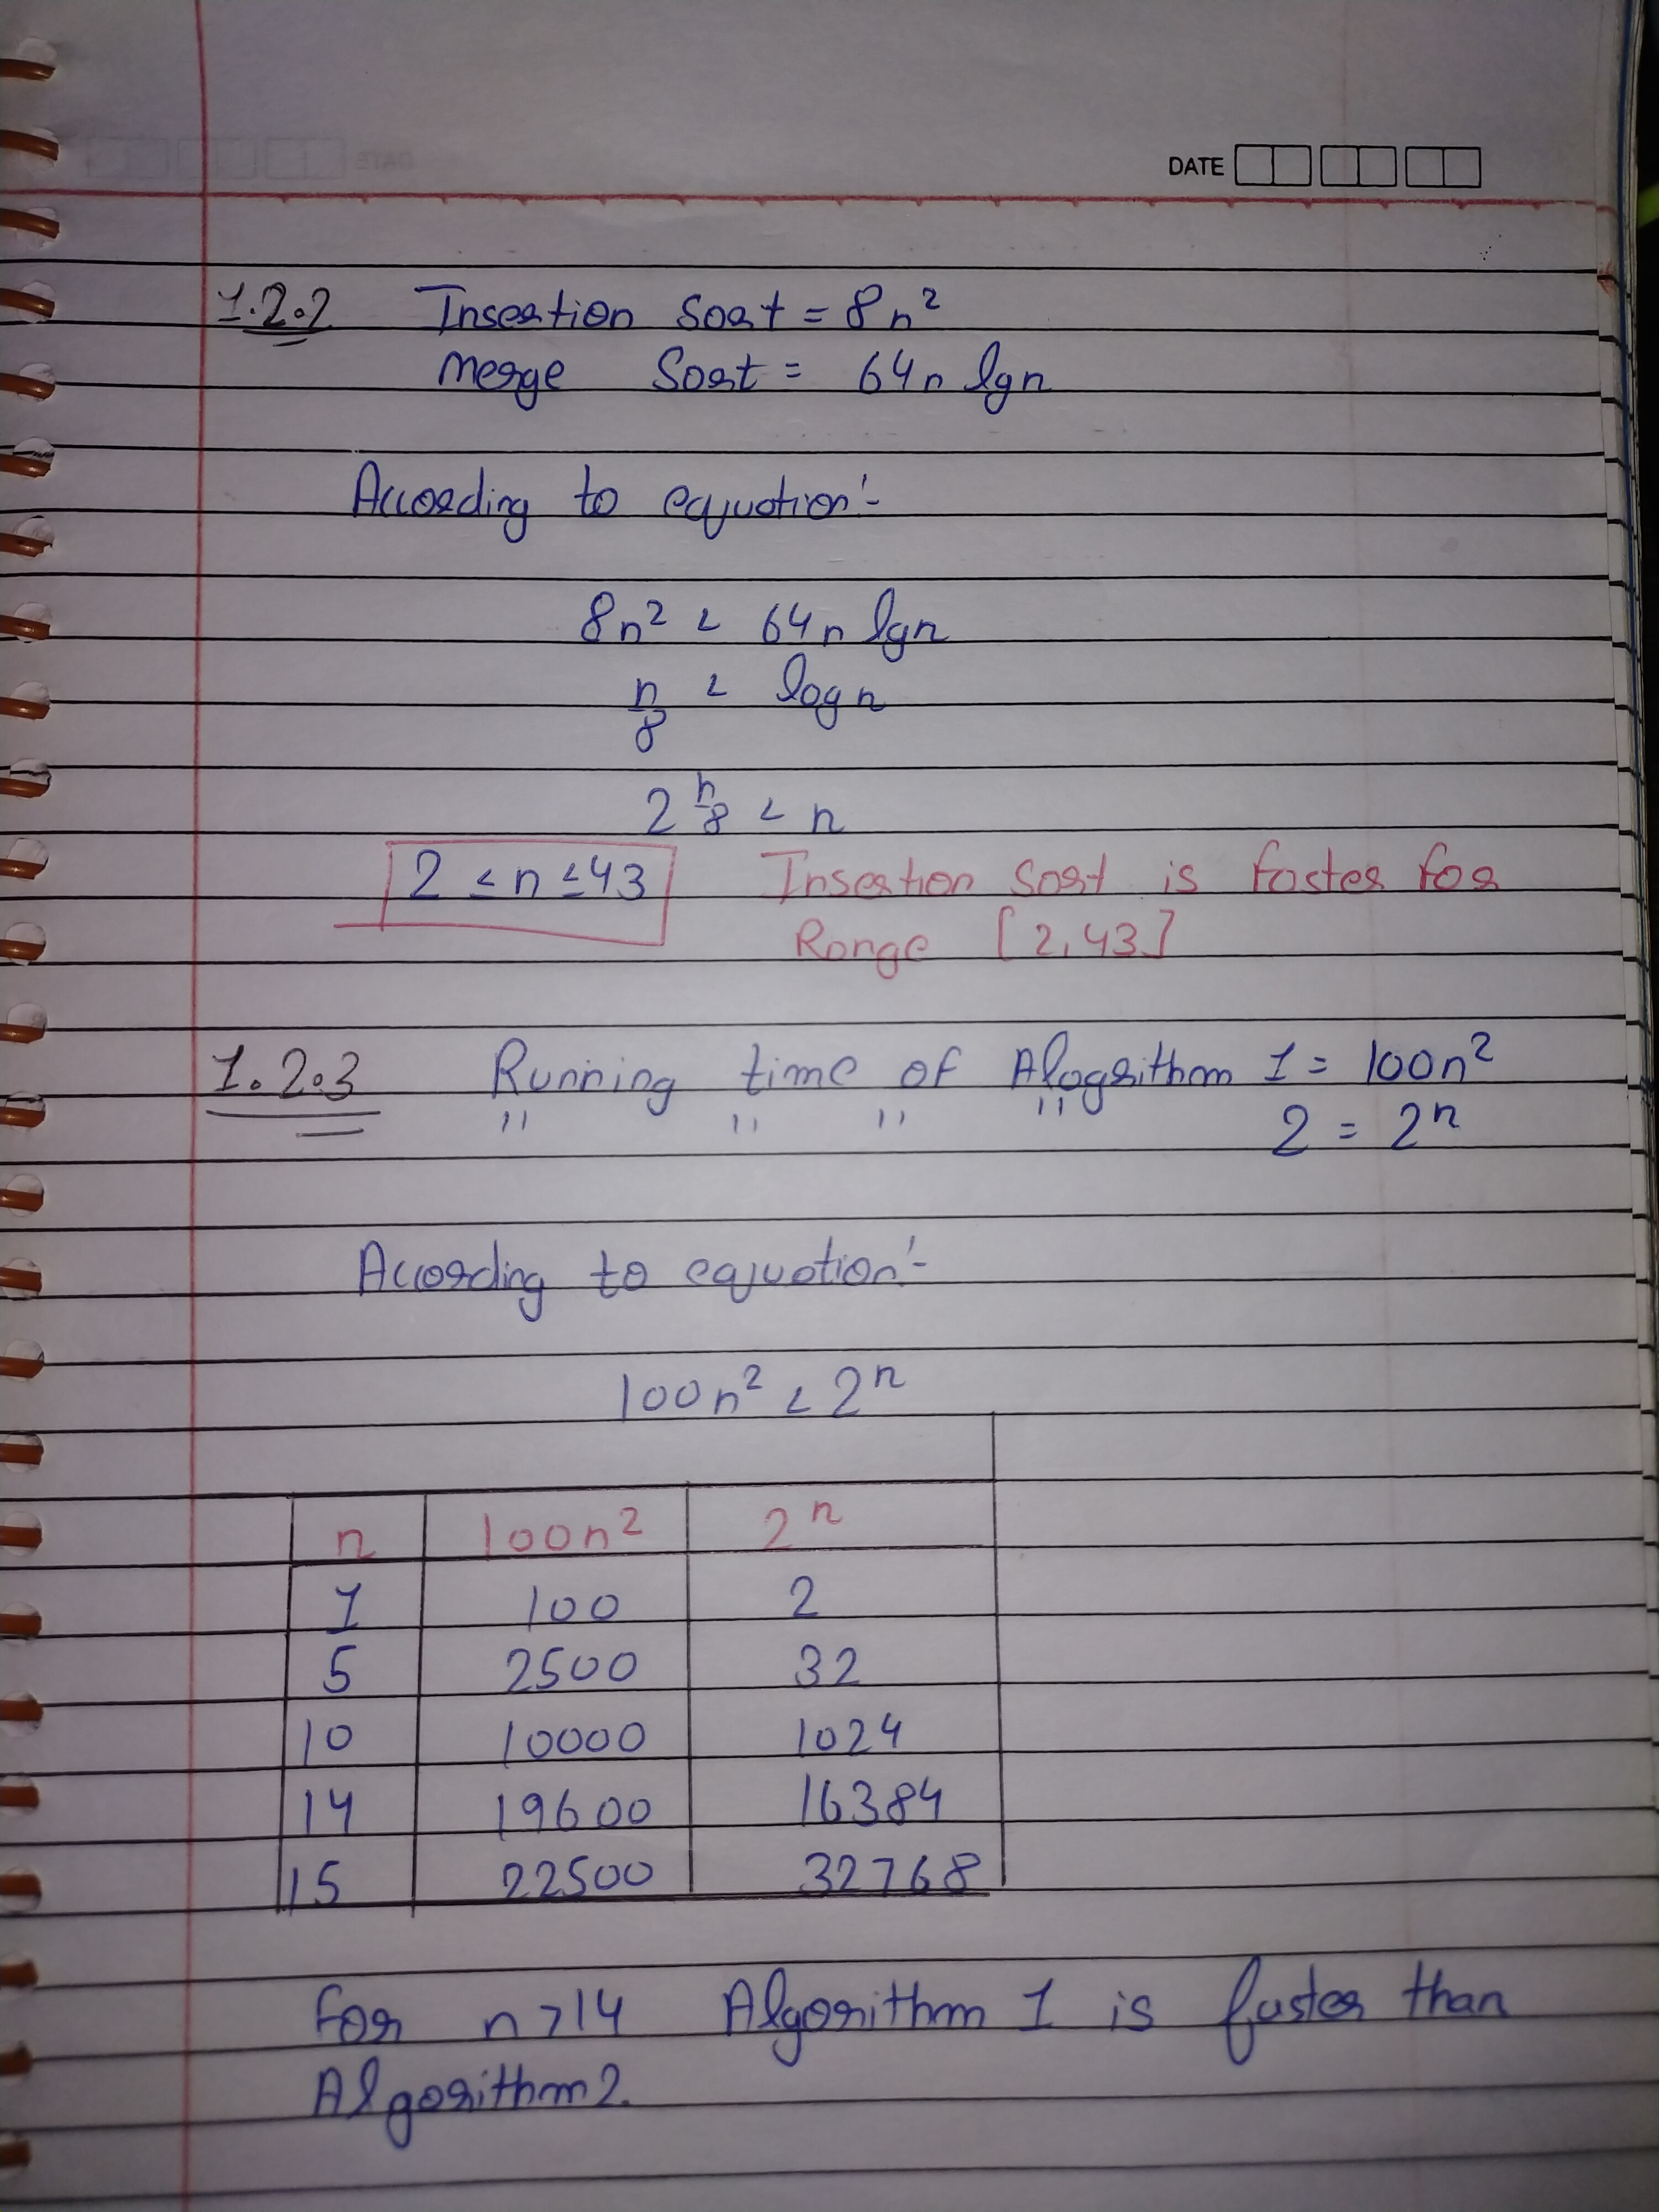 DATE
1.2.2 Insertion Sort = 8n²
Merge Sort = 64n lgn
According to equation:-
8n² < 64n lgn
n/8 < logn
2^(n/8) < n
2 ≤ n ≤ 43 Insertion Sort is faster for
Range [2,43]
1.2.3 Running time of Alogrithm 1 = 100n²
" " " " 2 = 2ⁿ
According to equation:-
100n² < 2ⁿ
n 100n² 2ⁿ
1 100 2
5 2500 32
10 10000 1024
14 19600 16384
15 22500 32768
For n>14 Algorithm 1 is faster than
Algorithm 2.